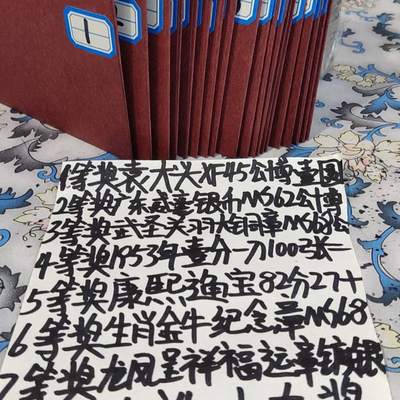 1
1等奖袁大头XF45公博壹圆
2等奖广东银币MS62公博
3等奖武圣关羽大铜章MS68公
4等奖1953年壹分一刀100张
5等奖康熙通宝82分27+
6等奖生肖金牛纪念章MS68
7等奖龙凤呈祥福运章镀银
奖